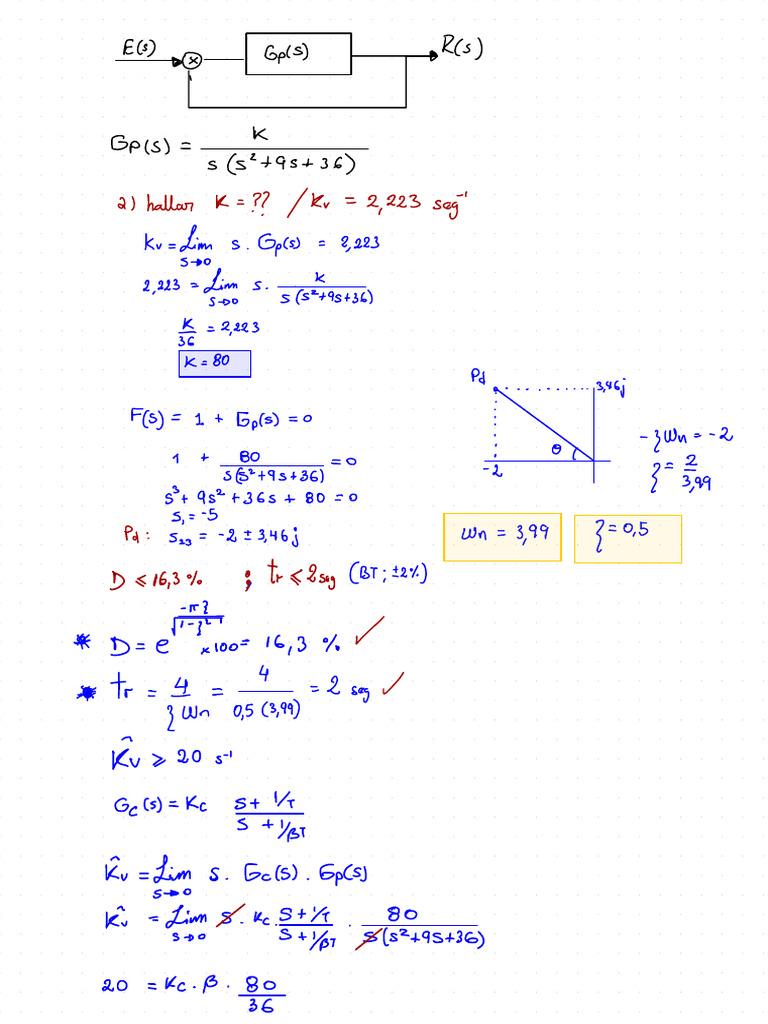 E(s) × Gp(s) R(s)
Gp(s) = K / s (s² + 9s + 36)
2) hallar K = ?? / Kv = 2,223 seg⁻¹
Kv = Lim s→0 s . Gp(s) = 2,223
2,223 = Lim s→0 s . K / s (s² + 9s + 36)
K / 36 = 2,223
K = 80
F(s) = 1 + Gp(s) = 0
1 + 80 / s(s² + 9s + 36) = 0
s³ + 9s² + 36s + 80 = 0
s₁ = -5
Pd : s₂₃ = -2 ± 3,46 j
Pd 3,46j
θ
-2
-ξ Wn = -2
ξ = 2 / 3,99
Wn = 3,99 ξ = 0,5
D ⩽ 16,3 % ; tr ⩽ 2 seg (BT ; ±2%)
* D = e^(-πξ / √(1-ξ²)) × 100 = 16,3 % ✓
* tr = 4 / ξ Wn = 4 / 0,5 (3,99) = 2 seg ✓
K̂v ⩾ 20 s⁻¹
Gc(s) = Kc (s + 1/T) / (s + 1/βT)
K̂v = Lim s→0 s . Gc(s) . Gp(s)
K̂v = Lim s→0 s . Kc . (s + 1/T) / (s + 1/βT) . 80 / s (s² + 9s + 36)
20 = Kc . β . 80 / 36